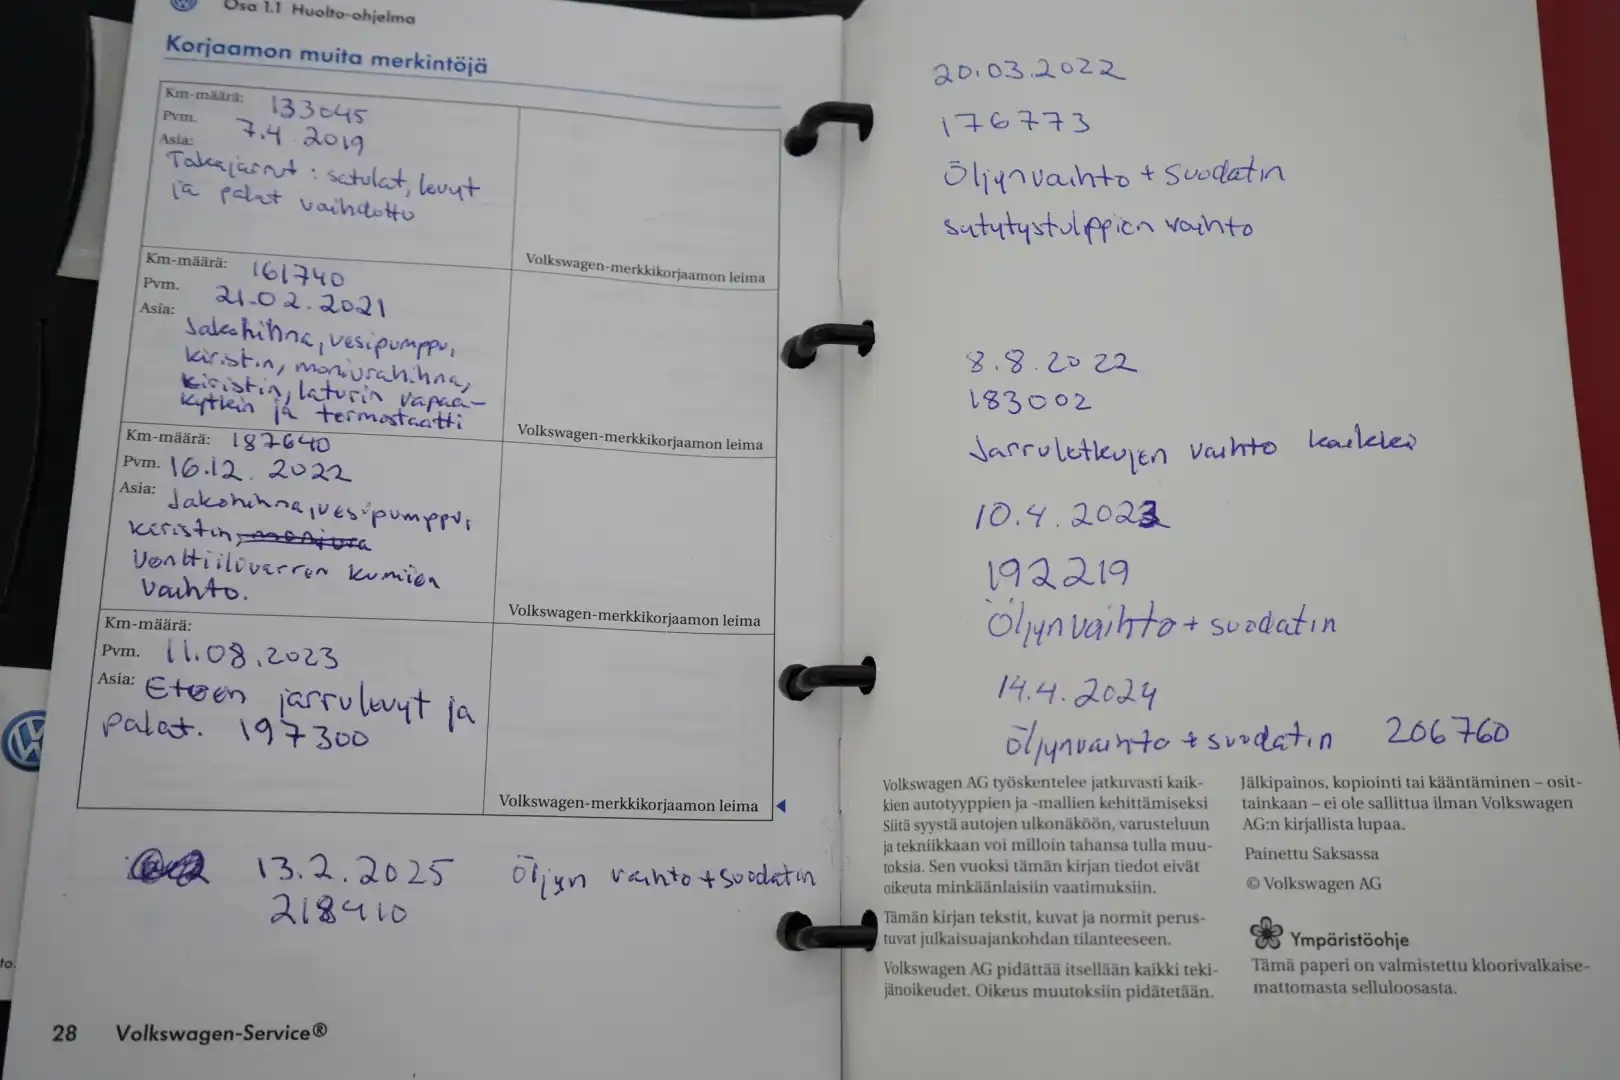 Osa 1.1 Huolto-ohjelma
Korjaamon muita merkintöjä
Km-määrä: 133045
Pvm. 7.4.2019
Asia:
Takajarrut: satulat, levyt
ja palat vaihdettu
Volkswagen-merkkikorjaamon leima
Km-määrä: 161740
Pvm. 21.02.2021
Asia:
Jakohihna, vesipumppu,
kiristin, moniurahihna,
kiristin, laturin vapaa-
kytkin ja termostaatti
Volkswagen-merkkikorjaamon leima
Km-määrä: 187640
Pvm. 16.12.2022
Asia: Jakohihna, vesipumppu,
kiristin, moniura
Venttiilivarren kumien
vaihto.
Volkswagen-merkkikorjaamon leima
Km-määrä:
Pvm. 11.08.2023
Asia: Eteen jarrulevyt ja
palat. 197300
Volkswagen-merkkikorjaamon leima
13.2.2025 Öljyn vaihto + suodatin
218410
28 Volkswagen-Service®
20.03.2022
176773
Öljynvaihto + suodatin
sytytystulppien vaihto
8.8.2022
183002
Jarruletkujen vaihto kaikki
10.4.2023
192219
Öljynvaihto + suodatin
14.4.2024
Öljynvaihto + suodatin 206760
Volkswagen AG työskentelee jatkuvasti kaik-
kien autotyyppien ja -mallien kehittämiseksi
Siitä syystä autojen ulkonäköön, varusteluun
ja tekniikkaan voi milloin tahansa tulla muu-
toksia. Sen vuoksi tämän kirjan tiedot eivät
oikeuta minkäänlaisiin vaatimuksiin.
Tämän kirjan tekstit, kuvat ja normit perus-
tuvat julkaisuajankohdan tilanteeseen.
Volkswagen AG pidättää itsellään kaikki teki-
jänoikeudet. Oikeus muutoksiin pidätetään.
Jälkipainos, kopiointi tai kääntäminen – osit-
tainkaan – ei ole sallittua ilman Volkswagen
AG:n kirjallista lupaa.
Painettu Saksassa
© Volkswagen AG
Ympäristöohje
Tämä paperi on valmistettu kloorivalkaise-
mattomasta selluloosasta.